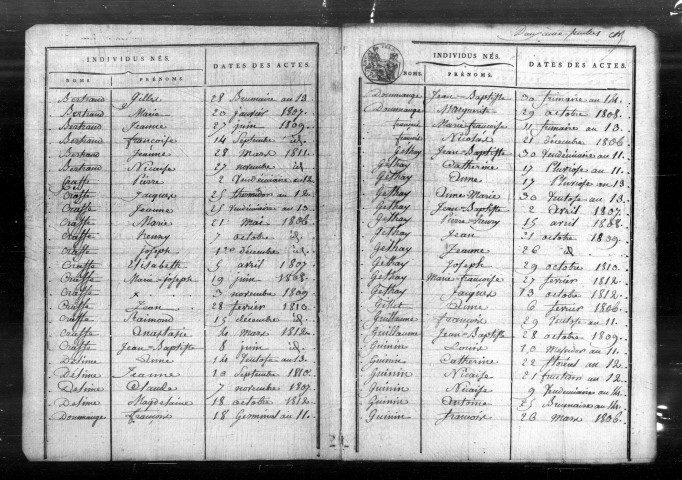 INDIVIDUS NÉS. DATES DES ACTES.
NOMS. PRÉNOMS.
Bertrand Gilles 28 Brumaire an 13.
Bertrand Maria 20 janvier 1807.
Bertrand Jeanne 27 juin 1809.
Bertrand françoise 14 Septembre id.
Bertrand Jeanne 28 Mars 1811.
Bertrand Nicaise 27 novembre id.
Craffe Pierre 2 Vendémiaire an 12.
Craffe Jacques 25 thermidor an 12.
Craffe Jeanne 25 Vendémiaire an 13.
Craffe Marie 21 Mai 1806.
Craffe henry 7 octobre id.
Craffe Joseph 1er décembre id.
Craffe Elisabeth 5 avril 1807.
Craffe Marie Joseph 19 juin 1808.
Craffe x 3 novembre 1809
Craffe Jean 28 février 1810.
Craffe Raimond 15 décembre id.
Craffe Anastasie 24 Mars 1812.
Craffe Jean-Baptiste 8 juin id.
Desime Anne 14 Ventose an 13.
Desime Jeanne 10 Septembre 1810.
Desime Claude 7 novembre 1807.
Desime Magdelaine 18 octobre 1812.
Dommange françois 18 Germinal an 11.
INDIVIDUS NÉS. DATES DES ACTES.
NOMS. PRÉNOMS.
Dommange Jean-Baptiste 30 frimaire an 14.
Dommange Marguerite 29 octobre 1808.
Marie françoise 21 frimaire an 13.
Nicolas 21 décembre 1806
Gethay Jean-Baptiste 30 Vendémiaire an 11.
Gethay Catherine 17 Pluviose an 11.
Gethay Anne 17 Pluviose an 13.
Gethay Anne Marie 30 Ventose an 13.
Gethay Jean-Baptiste 2 Avril 1807.
Gethay Pierre 15 avril 1808.
Gethay Jean 21 octobre 1809.
Gethay Jeanne 26 id
Gethay Joseph 29 octobre 1810.
Gethay Marie françoise 27 février 1812.
Gethay Jacques 13 octobre 1812.
Gillet Anne 6 février 1806.
Guillaume françois 29 Ventose an 11.
Guillaume Jean-Baptiste 28 octobre 1809.
Guinin Louise 10 Messidor an 11.
Guinin Catherine 22 floréal an 12.
Guinin Nicaise 21 fructidor an 12.
Guinin Nicaise 9 Vendémiaire an 14.
Guinin Antoine 25 Brumaire an 14.
Guinin françois 26 Mars 1806.